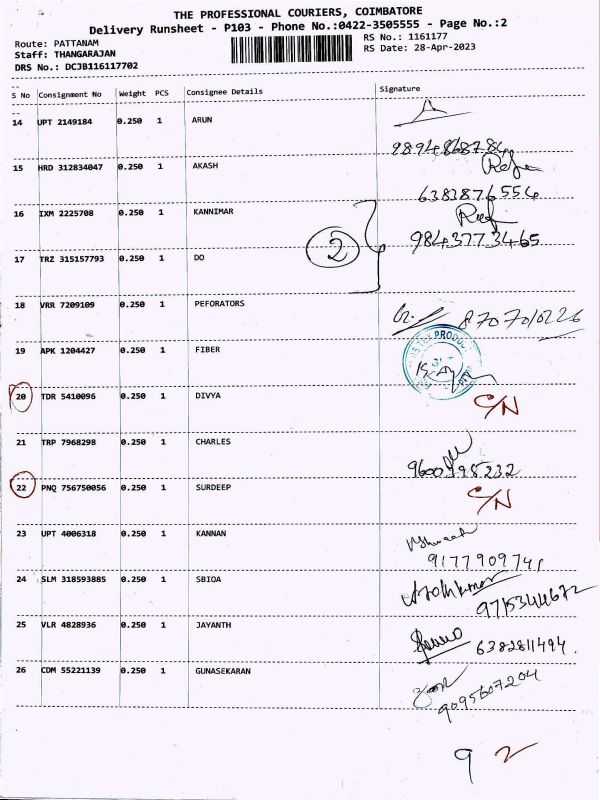 THE PROFESSIONAL COURIERS, COIMBATORE
Delivery Runsheet - P103 - Phone No.:0422-3505555 - Page No.:2
Route: PATTANAM RS No.: 1161177
Staff: THANGARAJAN RS Date: 28-Apr-2023
DRS No.: DCJB116117702
S No Consignment No Weight PCS Consignee Details Signature
14 UPT 2149184 0.250 1 ARUN
9894868784
15 HRD 312834047 0.250 1 AKASH
6383876554
16 IXM 2225708 0.250 1 KANNIMAR
9843773465
17 TRZ 315157793 0.250 1 DO
2
18 VRR 7209109 0.250 1 PEFORATORS
8707010226
19 APK 1204427 0.250 1 FIBER
20 TDR 5410096 0.250 1 DIVYA C/N
21 TRP 7968298 0.250 1 CHARLES
9600395232
22 PNQ 756750056 0.250 1 SURDEEP C/N
23 UPT 4006318 0.250 1 KANNAN
9177909741
24 SLM 318593885 0.250 1 SBIOA
9715344672
25 VLR 4828936 0.250 1 JAYANTH
6382811494.
26 CDM 55221139 0.250 1 GUNASEKARAN
9095607204
9 2